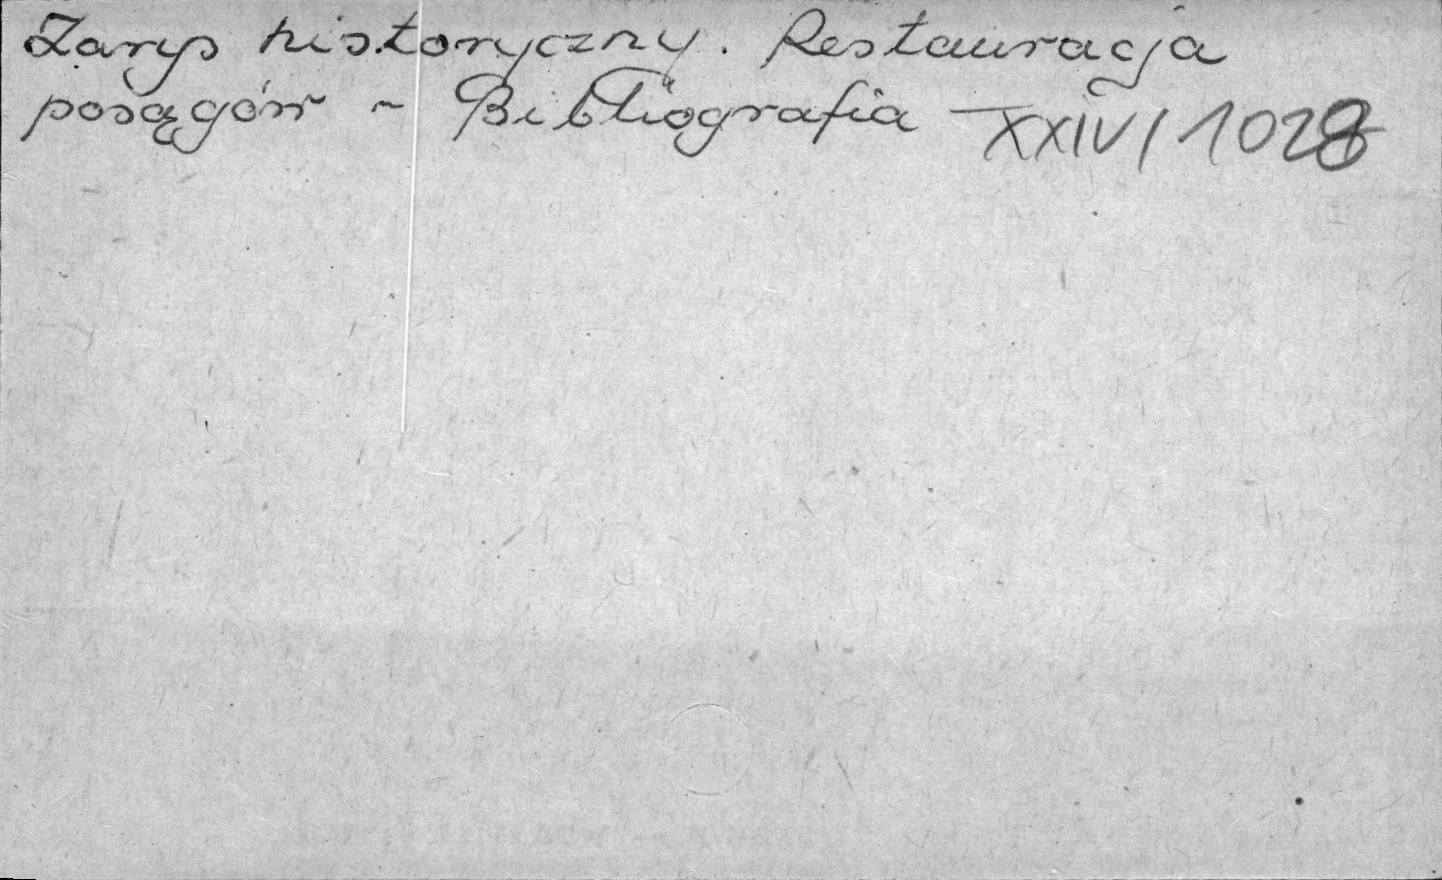 Zarys historyczny. Restauracja
posągów - Bibliografia XXIV/1028